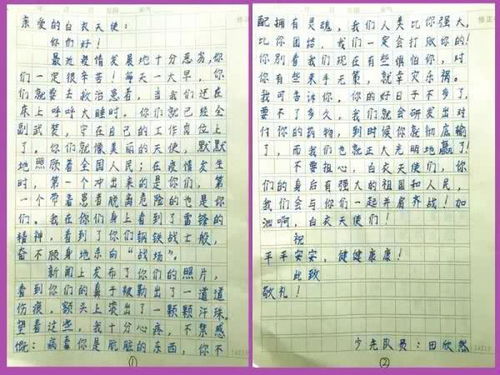 亲爱的白衣天使：
你们好！
最近疫情发展地十分恶劣，你
们一定很辛苦！每天一大早，你
们就要去救治患者，当我们还在
床上呼呼大睡时，你们就已经全
副武装，守在自己的工作岗位上
了，你们就像美丽的天使，默默
地照顾着全国人民；在疫情发生
时，第一个冲出来的是你们，第
一个带着患者脱离危险的也是你
们。我在你们身上看到了雷锋的
精神，看到了你们钢铁战士般，
奋不顾身地杀向“战场”。
新闻上发布了你们的照片，
看到你们的鼻子被勒出了一道道
伤痕，额头上突出了一颗颗汗珠。
望着这些，我十分心疼，不禁感
慨：病毒你是肮脏的东西，你不
①
配拥有灵魂，我们人类比你强大，
比你团结，我们一定会打败你的！
你别看我们现在有些惧怕你，对
你有些束手无策，就幸灾乐祸。
我可告诉你，你的好日子不多了，
要不了多久，我们就会研发出对
付你的药物，到时候你就彻底输
了，而我们也就正大光明地赢了！
不要担心，白衣天使们，你
们的身后有强大的祖国和人民，
我们会与你们一起并肩齐战！加
油啊，白衣天使们！
祝
平平安安，健健康康！
此致
敬礼！
少先队员：田欣然
②